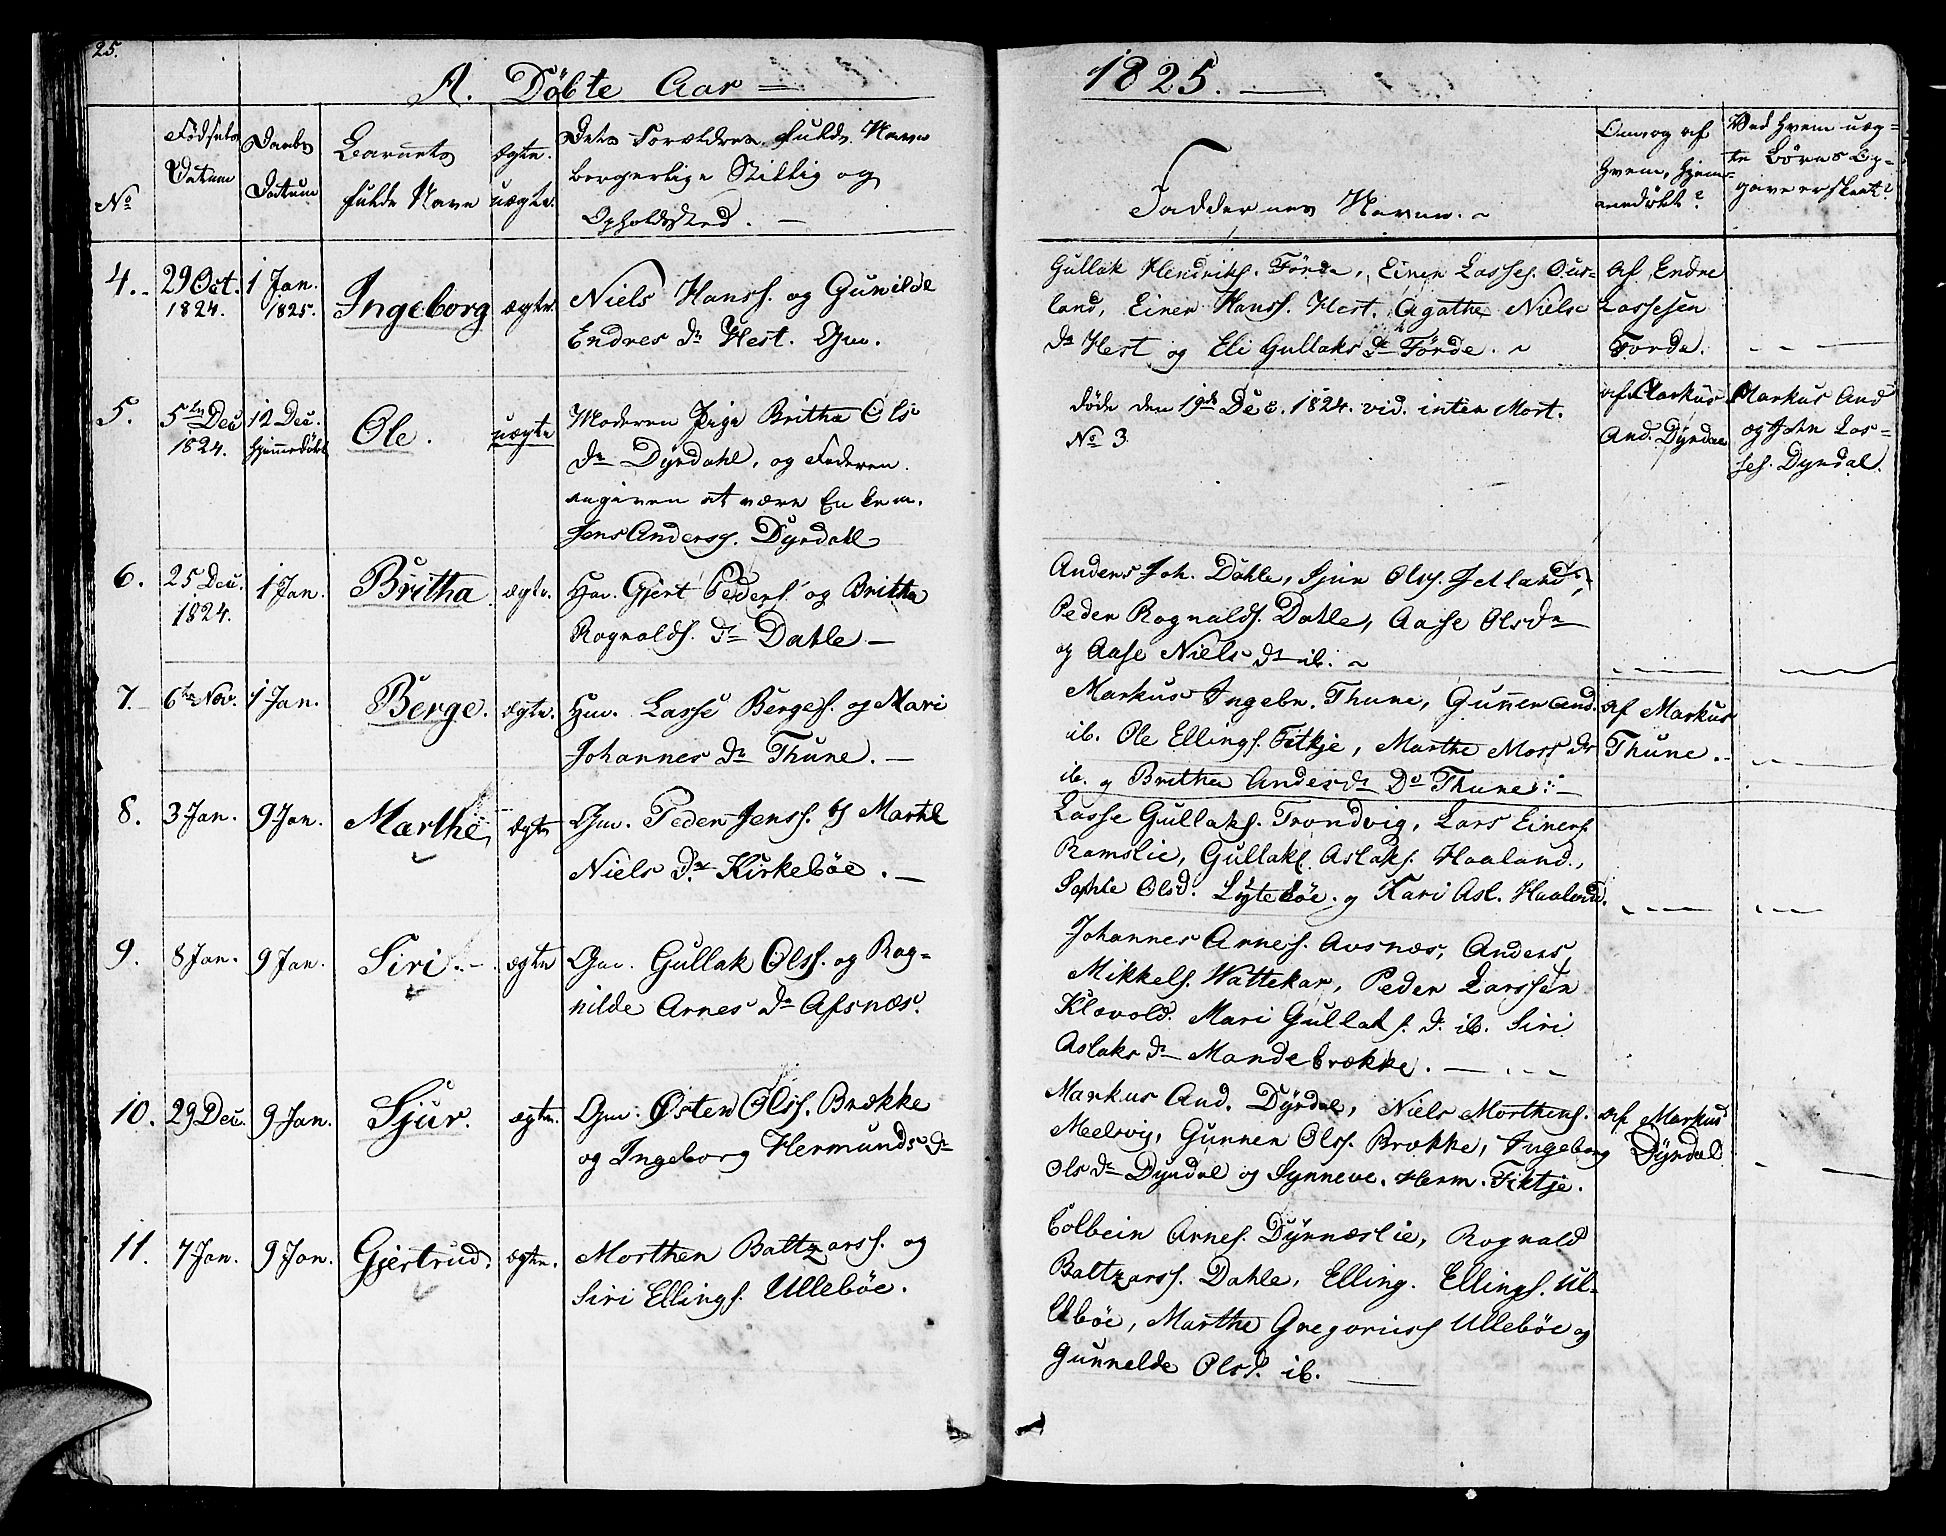 25.
A. Döbte Aar 1825.
No
Fødsels Datum
Daabs Datum
Barnets fulde Navn
Ægte. uægte.
Dets Forældres fulde Navn
borgerlige Stillig og
Opholdsted.
Faddernes Navne.
Om og af
hvem, hjem-
medöbt?
Ved hvem uæg-
te Börns Op-
gave er skeet?
4. 29 Oct. 1824. 1 Jan. 1825. Ingeborg ægte
Niels Hanss. og Gunilde
Endres Dr Hest. Gm.
Gullak Hendriks. Förde, Einer Lasses. Ous-
land, Einer Hanss. Hest. Agathe Niels
Dr Hest og Eli Gullaks Dr Förde.
Af Endre
Lassesen
Förde.
5. 5te Dec 1824. 12 Dec. hjemmedöbt Ole. uægte
Moderen Pige Britha Ols
Dr Dÿrdahl, og Faderen
angiven at være Enkem.
Jens Anderss. Dÿrdahl
döde den 19de Dec. 1824. vid. inter Mort.
No 3
af Markus
And. Dÿrdal
Markus And
og John Las-
ses. Dyrdal.
6. 25 Dec. 1824. 1 Jan. Britha ægte.
Hm. Gjert Peders. og Britha
Rognalds. Dr Dahle
Anders Joh. Dahle, Sjur Olss. Jetland,
Peder Rognalds. Dahle, Aase Olsdr
og Aase Niels Dr ib.
7. 6te Nov. 1 Jan. Berge. ægte.
Hm. Lasse Berges. og Mari
Johannes Dr Thune.
Markus Ingebr. Thune, Gunner And.
ib. Ole Ellings. Fitkje, Marthe Moss Dr
ib. og Britha Andersdr Do Thune
Af Markus
Thune.
8. 3 Jan. 9 Jan. Marthe ægte
Gm. Peder Jenss. og Marthe
Niels Dr Kirkebøe.
Lasse Gullaks. Trondvig, Lars Einers.
Ramslie, Gullak Aslaks. Haaland,
Sophie Olsd. Lÿtebøe. og Kari Asl. Haaland.
9. 8 Jan. 9 Jan. Siri. ægte
Gm. Gullak Olss. og Rag-
nilde Arnes Dr Afsnæs.
Johannes Arnes. Avsnæs, Anders
Mikkels. Wattekar, Peder Larssen
Klævold. Mari Gullaks. D. ib. Siri
Aslaks Dr Mandebrække.
10. 29 Dec. 9 Jan. Sjur. ægte.
Gm. Østen Olss. Brække
og Ingeborg Hermunds Dr
Markus And. Dÿrdal, Niels Morthens.
Meelsvig, Gunner Olss. Brække, Ingeborg
Ols Dr Dyrdal og Synneve. Herm. Fiktje.
af Markus
Dÿrdal
11. 7 Jan. 9 Jan. Gjertrud. ægte.
Morthen Baltzarss. og
Siri Ellings. Ullebøe.
Colbein Arnes. Dÿrnæslie, Rognald
Baltzarss. Dahle, Elling. Ellings. Ul-
lebøe, Marthe Gregoriuss Ullebøe og
Gunnelde Olsd. ib.